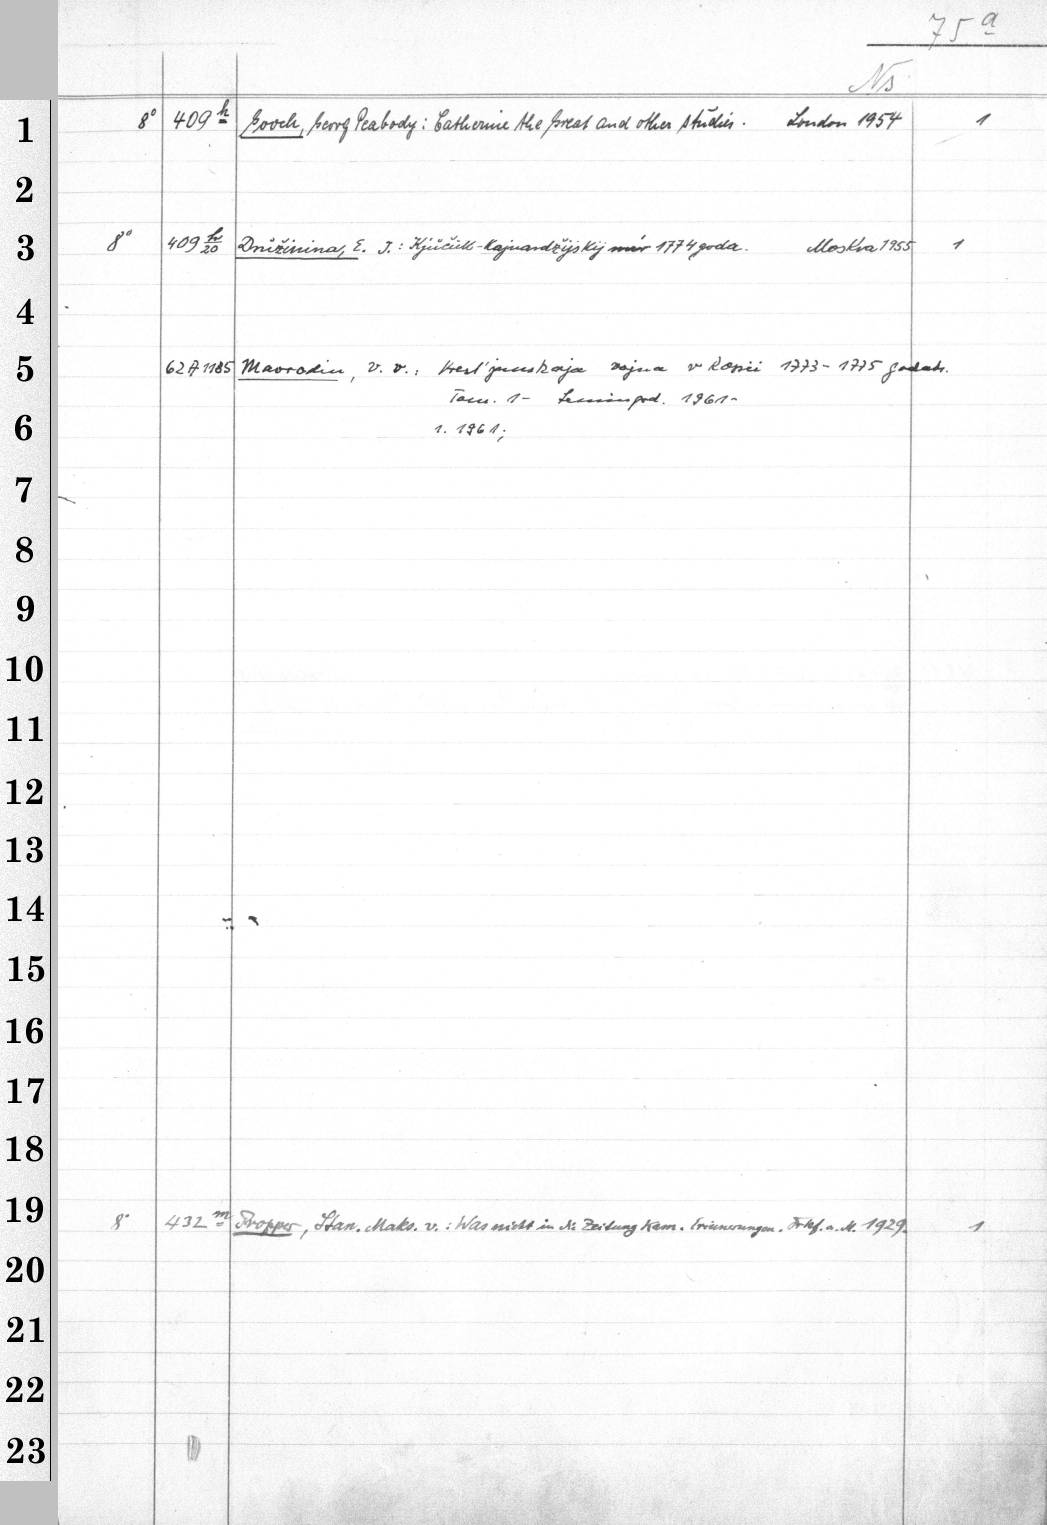 75 a
Ns
1 8° 409 h Gooch, Georg Peabody: Catherine the Great and other studies. London 1954 1
2
3 8° 409 h/20 Družinina, E. I.: Kjučuk-Kajnardžijskij mir 1774 goda. Moskva 1955 1
4
5 62 A 1185 Mavrodin, V. V.: Krest'janskaja vojna v Rossii 1773-1775 godach.
Tom. 1- Leningrad. 1961-
6 1. 1961;
7
8
9
10
11
12
13
14
15
16
17
18
19 8° 432 m Propper, Stan. Maks. v.: Was nicht in die Zeitung kam. Erinnerungen. Frkf. a. M. 1929. 1
20
21
22
23